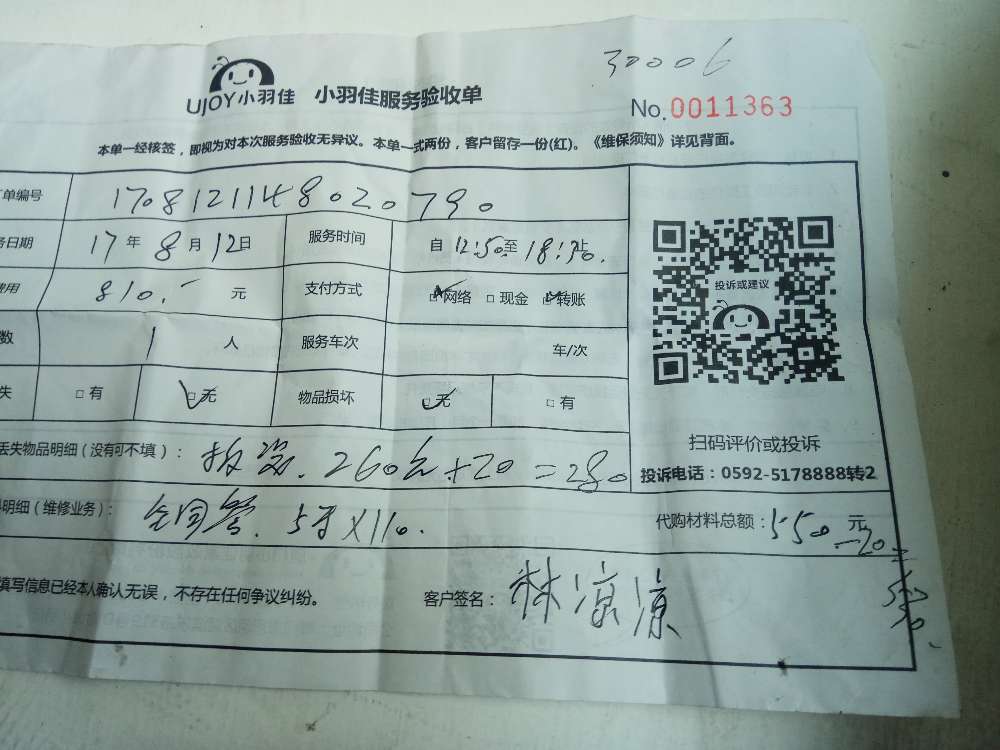 30006
UJOY小羽佳 小羽佳服务验收单
No.0011363
本单一经核签，即视为对本次服务验收无异议。本单一式两份，客户留存一份(红)。《维保须知》详见背面。
单编号 1708121148020790
日期 17年8月12日 服务时间 自12:50至18:30止
费用 810.- 元 支付方式 □网络 □现金 □转账
数 1人 服务车次 车/次
失 □有 □无 物品损坏 □无 □有
投诉或建议
扫码评价或投诉
投诉电话：0592-5178888转2
丢失物品明细（没有可不填）： 260元+20=280
明细（维修业务）： 5 X110. 代购材料总额：550元
-20=
530.
填写信息已经本人确认无误，不存在任何争议纠纷。 客户签名：林凉凉